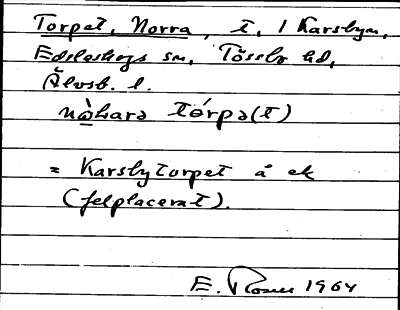 Torpet, Norra, t, i Karsbyn,
Edsleskogs sn, Tössbo hd,
Älvsb. l.
nòharə tórpə(t)
= Karsbytorpet å ek
(felplacerat).
E. Rosell 1964